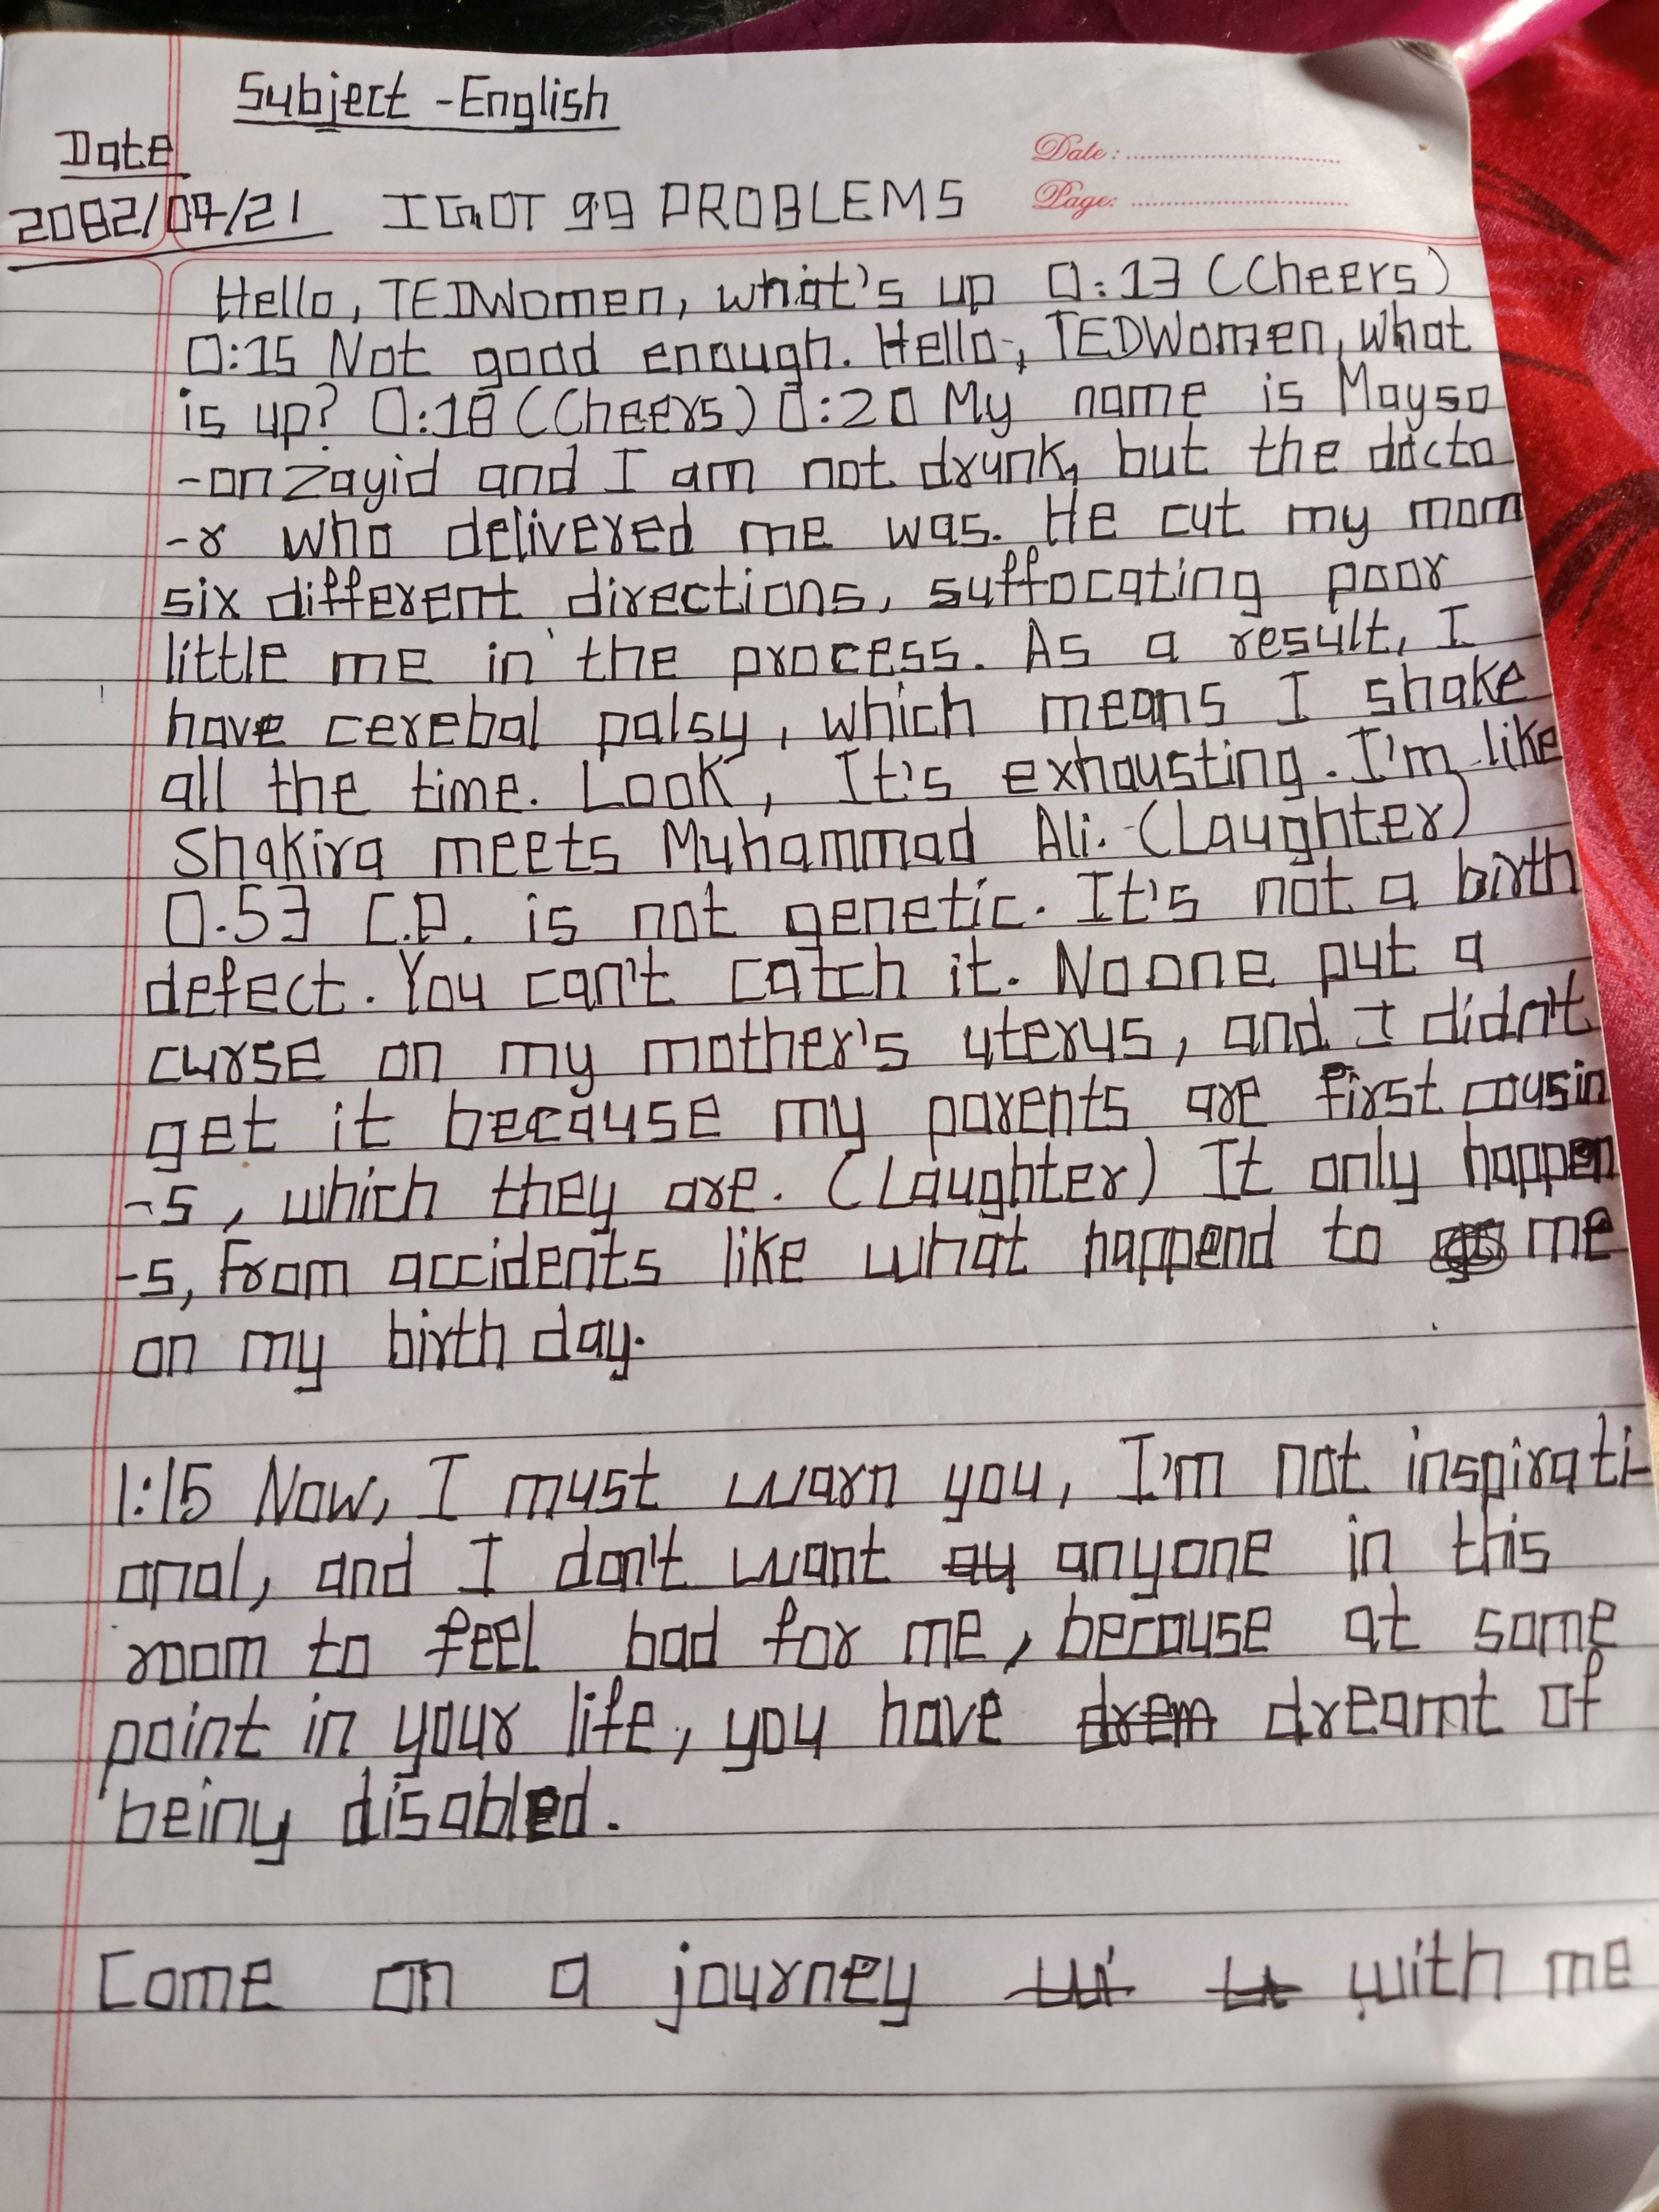 Subject - English
Date
Date : ........................
Page: ........................
2082/07/21 I GOT 99 PROBLEMS
Hello, TEDWomen, what's up 0:13 (Cheers)
0:15 Not good enough. Hello, TEDWomen, what
is up? 0:18 (Cheers) 0:20 My name is Mayso
-on zayid and I am not drunk, but the docto
-r who delivered me was. He cut my mom
six different directions, suffocating poor
little me in the process. As a result, I
have cerebal palsy, which means I shake
all the time. Look, It's exhausting. I'm like
Shakira meets Muhammad Ali. (Laughter)
0.53 C.P. is not genetic. It's not a birth
defect. You can't catch it. No one put a
curse on my mother's uterus, and I didn't
get it because my parents are first cousin
-s, which they are. (Laughter) It only happen
-s, from accidents like what happend to me
on my birth day.
1:15 Now, I must warn you, I'm not inspirati-
onal, and I don't want anyone in this
room to feel bad for me, because at some
point in your life, you have drem dreamt of
beiny disabled.
Come on a journey with me